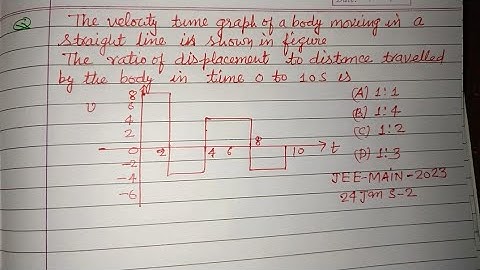 2 The velocity time graph of a body moving in a
straight line is shown in figure
The ratio of displacement to distance travelled
by the body in time 0 to 10s is
8
v 6
4
2
0 2 4 6 8 10 t
-2
-4
-6
(A) 1:1
(B) 1:4
(C) 1:2
(D) 1:3
JEE-MAIN-2023
24 Jan S-2